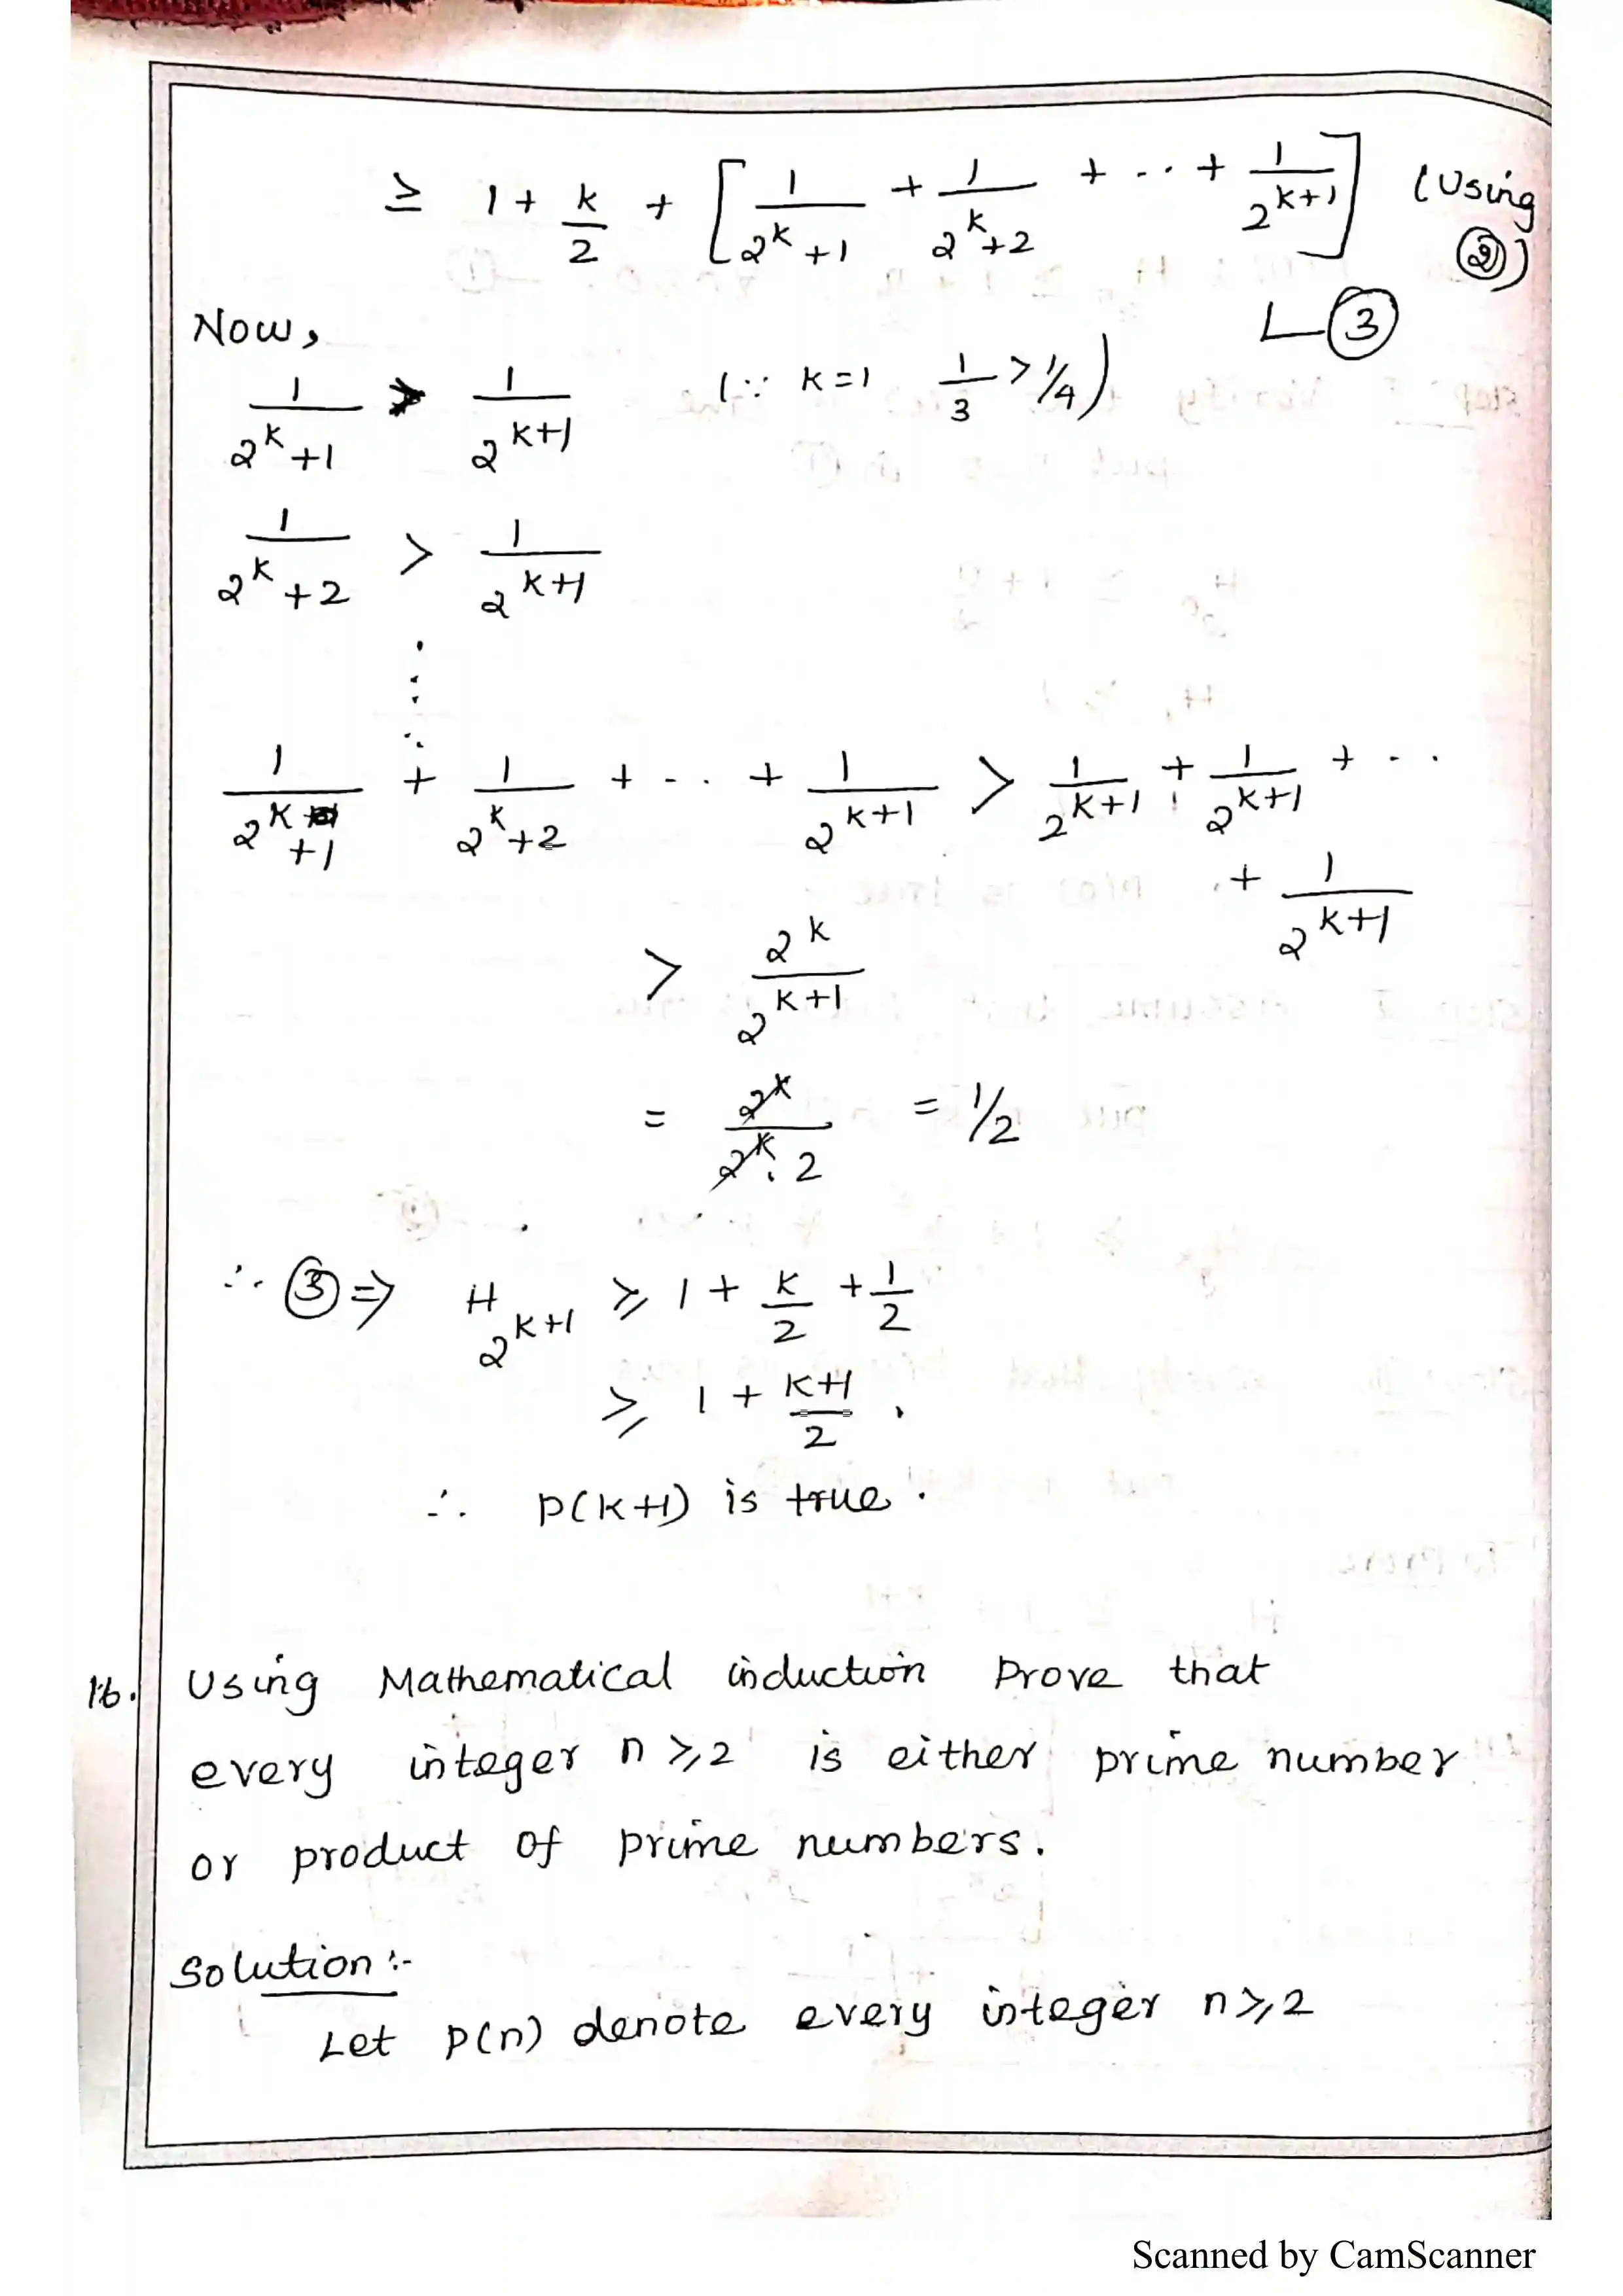 ≥ 1 + k/2 + [ 1/(2^k + 1) + 1/(2^k + 2) + - . . + 1/2^(k+1) ] (Using ②)
∟③
Now,
1/(2^k + 1) > 1/2^(k+1) (∵ k=1 1/3 > 1/4)
1/(2^k + 2) > 1/2^(k+1)
⋮
1/(2^k + 1) + 1/(2^k + 2) + - . . + 1/2^(k+1) > 1/2^(k+1) + 1/2^(k+1) + - . .
+ 1/2^(k+1)
> 2^k/2^(k+1)
= 2^k/(2^k . 2) = 1/2
∴ ③ ⇒ H_2^(k+1) ≥ 1 + k/2 + 1/2
≥ 1 + (k+1)/2 .
∴ P(k+1) is true .
16. Using Mathematical induction Prove that
every integer n ≥ 2 is either prime number
or product of prime numbers.
Solution :-
Let P(n) denote every integer n ≥ 2
Scanned by CamScanner